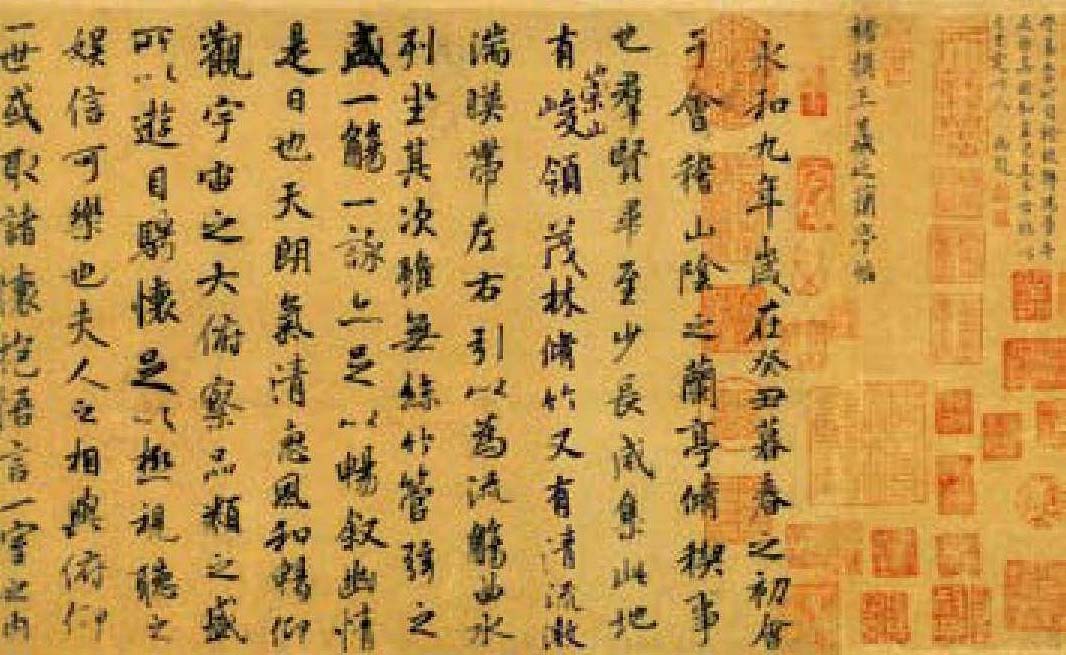 褚摸王羲之蘭亭帖
永和九年歲在癸丑暮春之初會
于會稽山陰之蘭亭脩稧事
也羣賢畢至少長咸集此地
有崇山峻領茂林脩竹又有清流激
湍暎帶左右引以為流觴曲水
列坐其次雖無絲竹管弦之
盛一觴一詠亦足以暢叙幽情
是日也天朗氣清惠風和暢仰
觀宇宙之大俯察品類之盛
所以遊目騁懷足以極視聽之
娱信可樂也夫人之相與俯仰
一世或取諸懷抱悟言一室之內